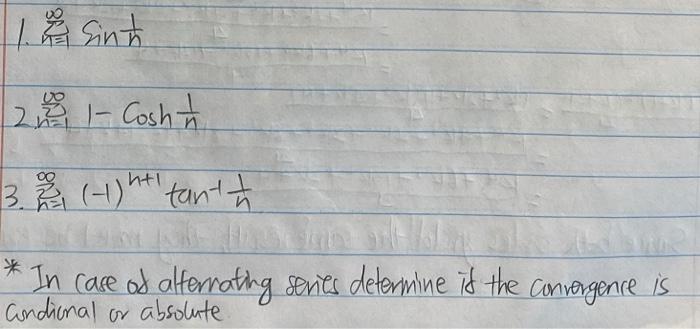 1. ∞ Σ n=1 Sin 1/n
2. ∞ Σ n=1 1 - Cosh 1/n
3. ∞ Σ n=1 (-1)^n+1 tan^-1 1/n
* In case of alternating series determine if the convergence is
condional or absolute